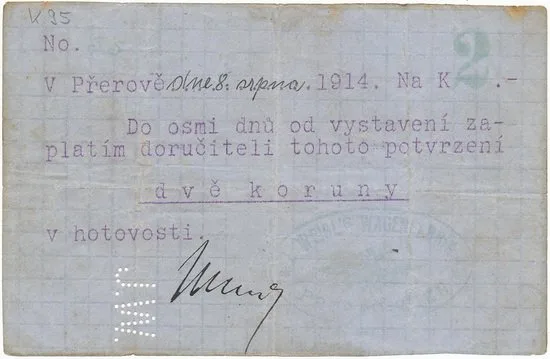 K 95
No. 2
V Přerově dne 8. srpna. 1914. Na K .-
Do osmi dnů od vystavení za-
platím doručiteli tohoto potvrzení
dvě koruny
v hotovosti.